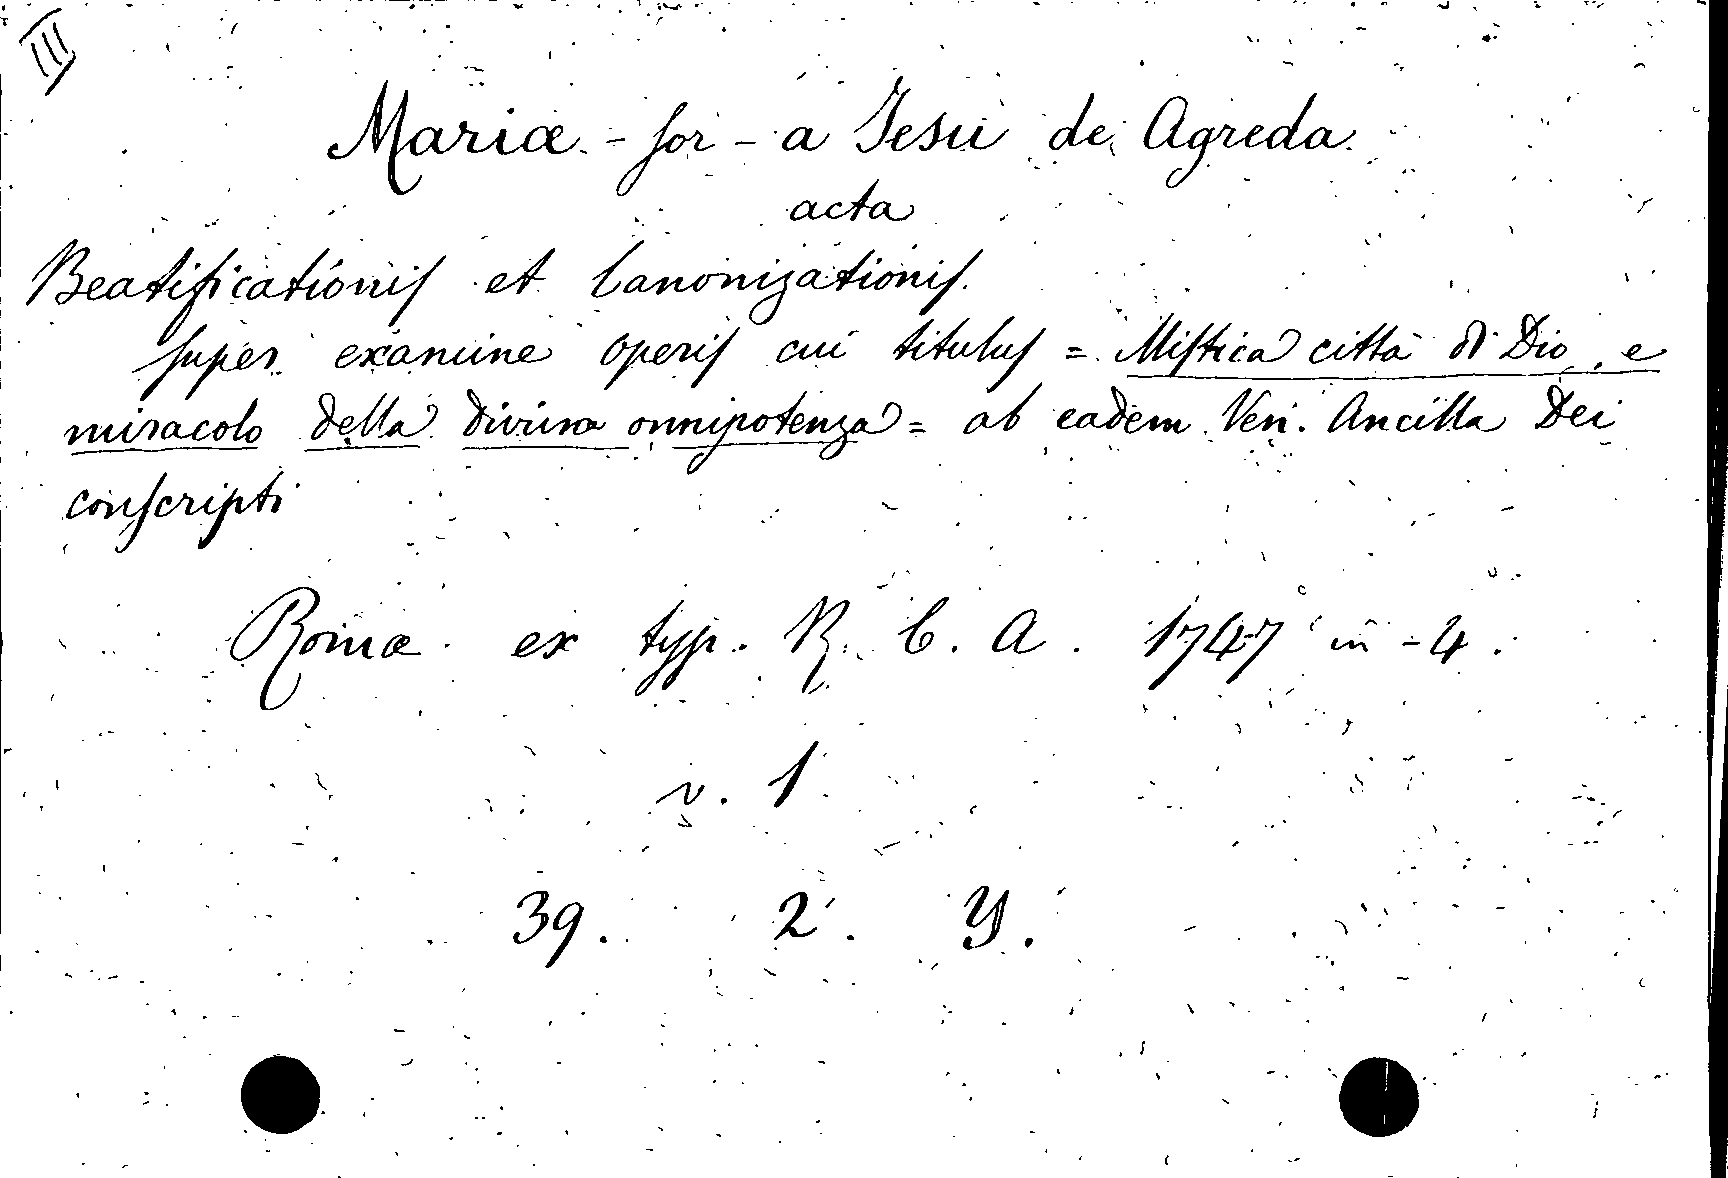 III
Mariæ - sor - a Jesu de Agreda
acta
Beatificationis et Canonizationis.
super examine operis cui titulus = Mistica città di Dio, e
miracolo della divina onnipotenza = ab eadem Ven. Ancilla Dei
conscripti
Romæ ex typ. R. C. A. 1747 in-4.
v. 1
39. 2. Y.